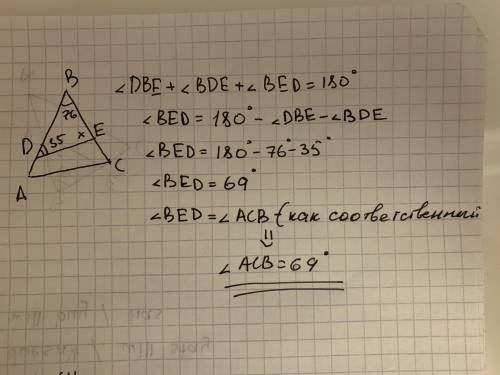 B
76
D 35 x E
A C
∠DBE + ∠BDE + ∠BED = 180°
∠BED = 180° - ∠DBE - ∠BDE
∠BED = 180° - 76° - 35°
∠BED = 69°
∠BED = ∠ACB (как соответственный
⇓
∠ACB = 69°